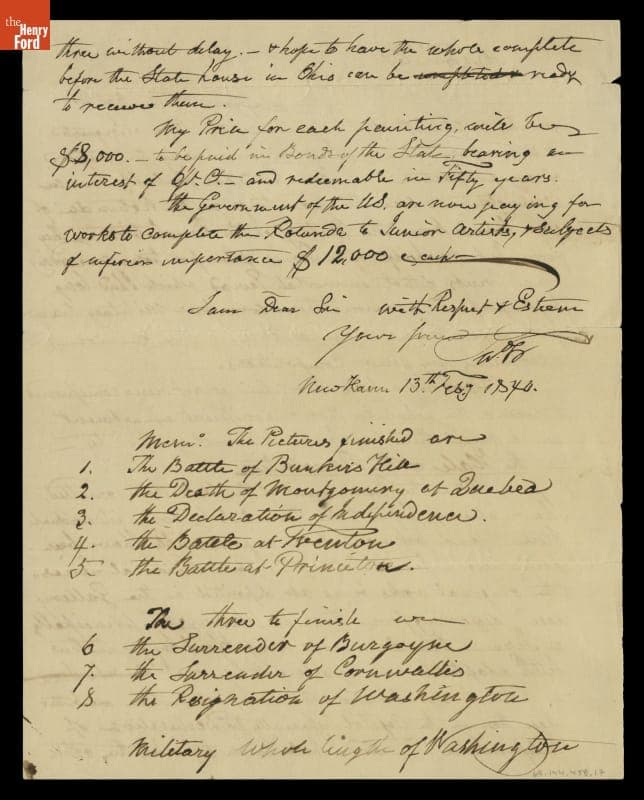 the
Henry
Ford
three without delay. — & hope to have the whole complete
before the State house in Ohio can be ready
to receive them.
My Price for each painting, will be
$8,000. — to be paid in Bonds of the State, bearing an
interest of 6 P. Ct. — and redeemable in Fifty years.
the Government of the U.S. are now paying for
works to complete the Rotunda to Junior Artists, & Subjects
of inferior importance $12,000 each —
I am Dear Sir with Respect & Esteem
Yours
New Haven 13th Feby 1840.
Memo. The Pictures finished are
1. The Battle of Bunker's Hill
2. the Death of Montgomery at Quebec
3. the Declaration of Independence.
4. the Battle at Trenton
5. the Battle at Princeton.
The three to finish
6 the Surrender of Burgoyne
7. the Surrender of Cornwallis
8 the Resignation of Washington
Military whole length of Washington